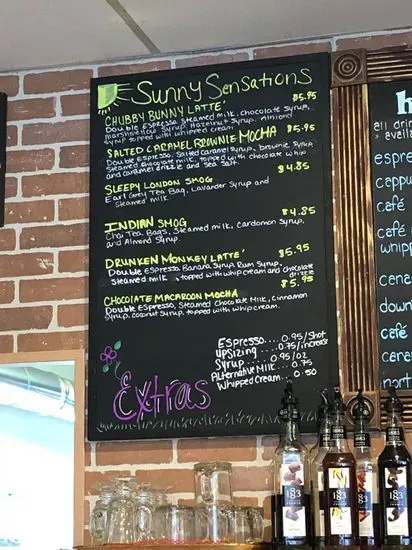 Sunny Sensations
'CHUBBY BUNNY LATTE' $5.95
Double Espresso Steamed milk, chocolate Syrup,
marshmellow Syrup, Hazelnut Syrup, Almond
Syrup topped with whipped cream.
SALTED CARAMEL BROWNIE MOCHA $5.95
Double Espresso, Salted caramel Syrup, brownie Syrup
Steamed chocolate milk, topped with chocolate whip
and caramel drizzle and Sea salt
SLEEPY LONDON SMOG $4.85
Earl Grey Tea Bag, Lavander Syrup and
Steamed milk
INDIAN SMOG $4.85
Chai Tea Bags, Steamed milk, Cardomon Syrup,
and Almond Syrup.
DRUNKEN MONKEY LATTE' $5.95
Double Espresso Banana Syrup Rum Syrup,
Steamed milk, topped with whip cream and chocolate
drizzle
CHOCOLATE MACAROON MOCHA $5.95
Double Espresso, Steamed chocolate Milk, Cinnamon
Syrup, coconut Syrup, topped with whip cream.
Espresso.... 0.95/Shot
UPSizing ....0.75/increase
Syrup ....0.95/OZ
Alternative Milk ....0.75
Whipped Cream....0.50
Extras
h
all drin
avail
espre
cappu
café
café
with
cena
dow
café
cena
nort
1883
1883
1883
1883